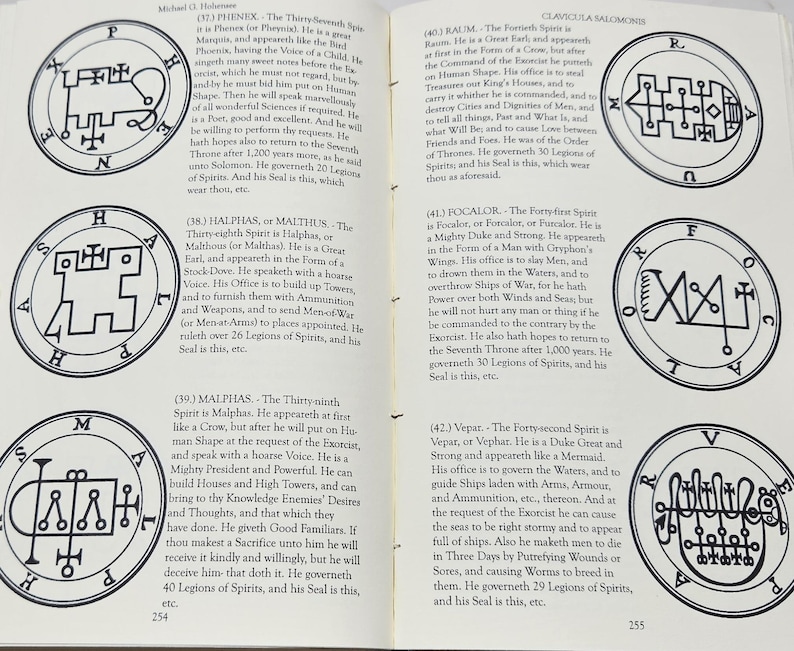 Michael G. Hohensee
(37.) PHENEX. - The Thirty-Seventh Spir-
it is Phenex (or Pheynix). He is a great
Marquis, and appeareth like the Bird
Phoenix, having the Voice of a Child. He
singeth many sweet notes before the Ex-
orcist, which he must not regard, but by-
and-by he must bid him put on Human
Shape. Then he will speak marvellously
of all wonderful Sciences if required. He
is a Poet, good and excellent. And he will
be willing to perform thy requests. He
hath hopes also to return to the Seventh
Throne after 1,200 years more, as he said
unto Solomon. He governeth 20 Legions
of Spirits. And his Seal is this, which
wear thou, etc.
PHENEX
(38.) HALPHAS, or MALTHUS. - The
Thirty-eighth Spirit is Halphas, or
Malthous (or Malthas). He is a Great
Earl, and appeareth in the Form of a
Stock-Dove. He speaketh with a hoarse
Voice. His Office is to build up Towers,
and to furnish them with Ammunition
and Weapons, and to send Men-of-War
(or Men-at-Arms) to places appointed. He
ruleth over 26 Legions of Spirits, and his
Seal is this, etc.
HALPHAS
(39.) MALPHAS. - The Thirty-ninth
Spirit is Malphas. He appeareth at first
like a Crow, but after he will put on Hu-
man Shape at the request of the Exorcist,
and speak with a hoarse Voice. He is a
Mighty President and Powerful. He can
build Houses and High Towers, and can
bring to thy Knowledge Enemies' Desires
and Thoughts, and that which they
have done. He giveth Good Familiars. If
thou makest a Sacrifice unto him he will
receive it kindly and willingly, but he will
deceive him- that doth it. He governeth
40 Legions of Spirits, and his Seal is this,
etc.
MALPHAS
254
CLAVICULA SALOMONIS
(40.) RAUM. - The Fortieth Spirit is
Raum. He is a Great Earl; and appeareth
at first in the Form of a Crow, but after
the Command of the Exorcist he putteth
on Human Shape. His office is to steal
Treasures out King's Houses, and to
carry it whither he is commanded, and to
destroy Cities and Dignities of Men, and
to tell all things, Past and What Is, and
what Will Be; and to cause Love between
Friends and Foes. He was of the Order
of Thrones. He governeth 30 Legions of
Spirits; and his Seal is this, which wear
thou as aforesaid.
RAUM
(41.) FOCALOR. - The Forty-first Spirit
is Focalor, or Forcalor, or Furcalor. He is
a Mighty Duke and Strong. He appeareth
in the Form of a Man with Gryphon's
Wings. His office is to slay Men, and
to drown them in the Waters, and to
overthrow Ships of War, for he hath
Power over both Winds and Seas; but
he will not hurt any man or thing if he
be commanded to the contrary by the
Exorcist. He also hath hopes to return to
the Seventh Throne after 1,000 years. He
governeth 30 Legions of Spirits, and his
Seal is this, etc.
FOCALOR
(42.) Vepar. - The Forty-second Spirit is
Vepar, or Vephar. He is a Duke Great and
Strong and appeareth like a Mermaid.
His office is to govern the Waters, and to
guide Ships laden with Arms, Armour,
and Ammunition, etc., thereon. And at
the request of the Exorcist he can cause
the seas to be right stormy and to appear
full of ships. Also he maketh men to die
in Three Days by Putrefying Wounds or
Sores, and causing Worms to breed in
them. He governeth 29 Legions of Spirits,
and his Seal is this, etc.
VEPAR
255